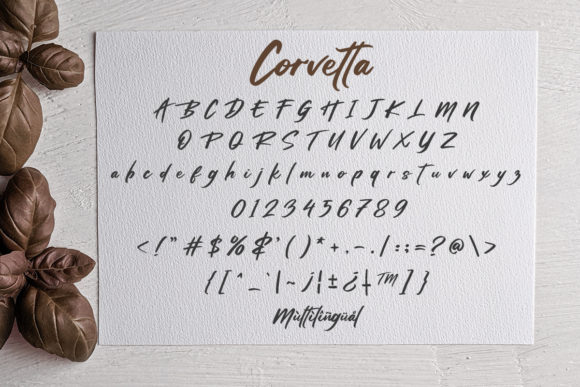 Corvetta
A B C D E F G H I J K L M N
O P Q R S T U V W X Y Z
a b c d e f g h i j k l m n o p q r s t u v w x y z
0 1 2 3 4 5 6 7 8 9
< ! " # $ % & ' ( ) * + , - . / : ; = ? @ \ >
{ [ ^ _ ` | ~ ¡ ¦ ± ¿ ‡ ™ ] }
Mùltilîñgüál